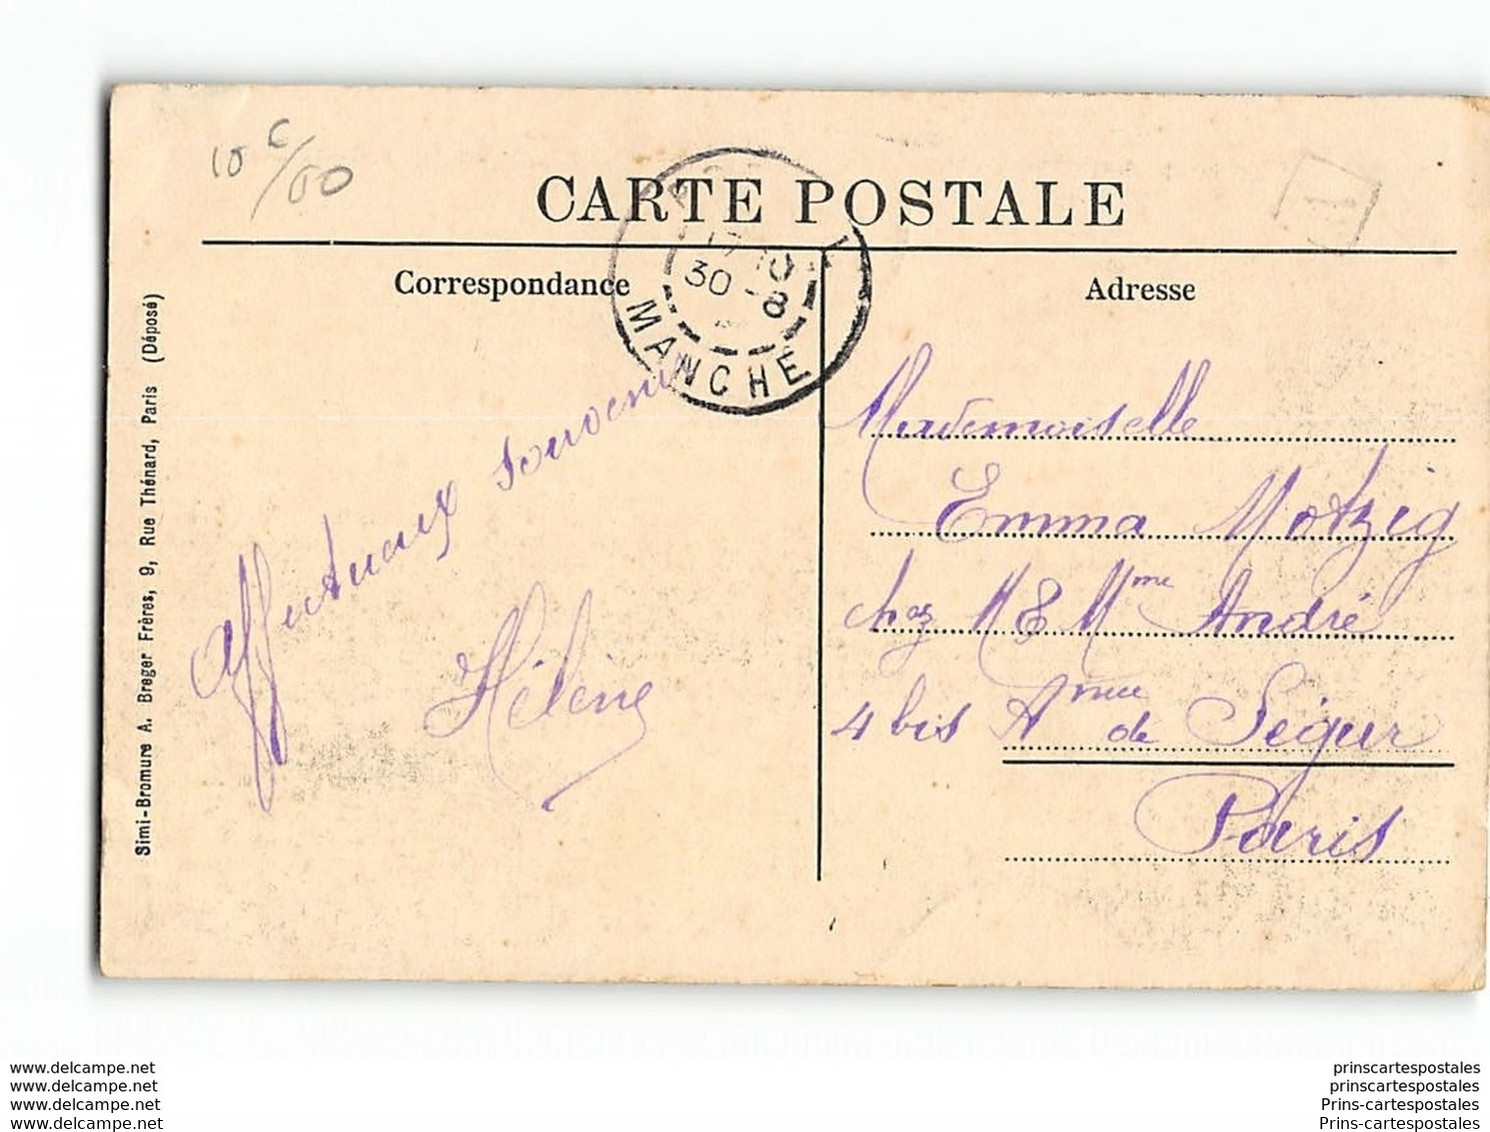 10 c/00
CARTE POSTALE
17 10
30 -8
MANCHE
Correspondance
Adresse
Simi-Bromure A. Breger Frères, 9, Rue Thénard, Paris (Déposé)
Affectueux souvenir
Hélène
Mademoiselle
Emma Motzig
chez M & Mme André
4 bis Anue de Ségur
Paris
www.delcampe.net
www.delcampe.net
www.delcampe.net
www.delcampe.net
prinscartespostales
prinscartespostales
Prins-cartespostales
Prins-cartespostales